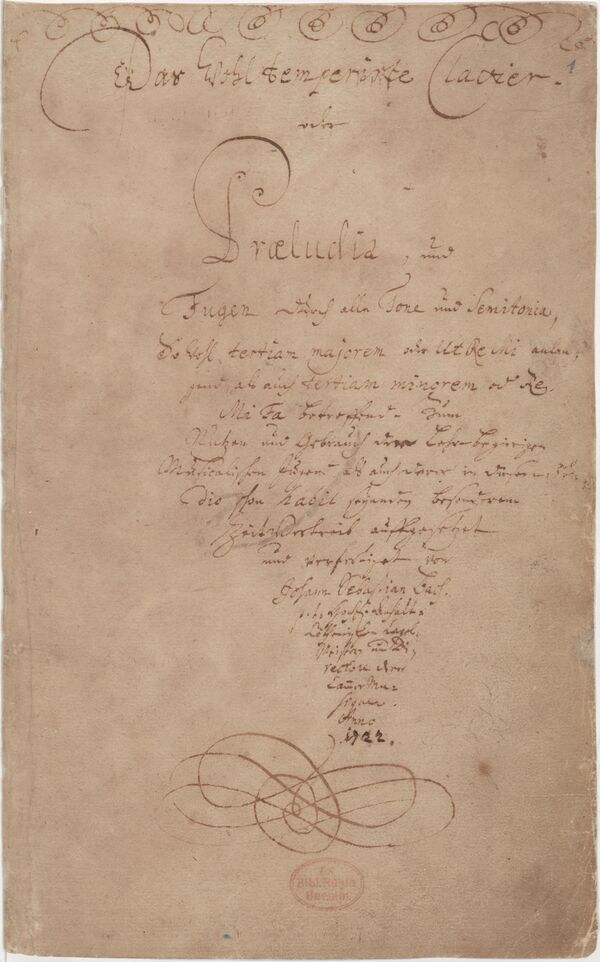 Das Wohltemperirte Clavier.
oder
Præludia, und
Fugen durch alle Tone und Semitonia,
So wohl tertiam majorem oder Ut Re Mi anlan-
gend, als auch tertiam minorem od Re
Mi Fa betreffend. Zum
Nutzen und Gebrauch der Lehr-begierigen
Musicalischen Jugend als auch derer in diesem stu-
dio schon habil seyenden besonderem
ZeitVertreib auffgesetzet
und verfertiget von
Johann Sebastian Bach.
p. t. HochF. Anhalt-
Cöthenischen Capel-
Meistern und Di-
rectore derer
Cam̅er Mu-
siquen.
Anno
1722.
1
Ex
Bibl. Regia
Berolin.